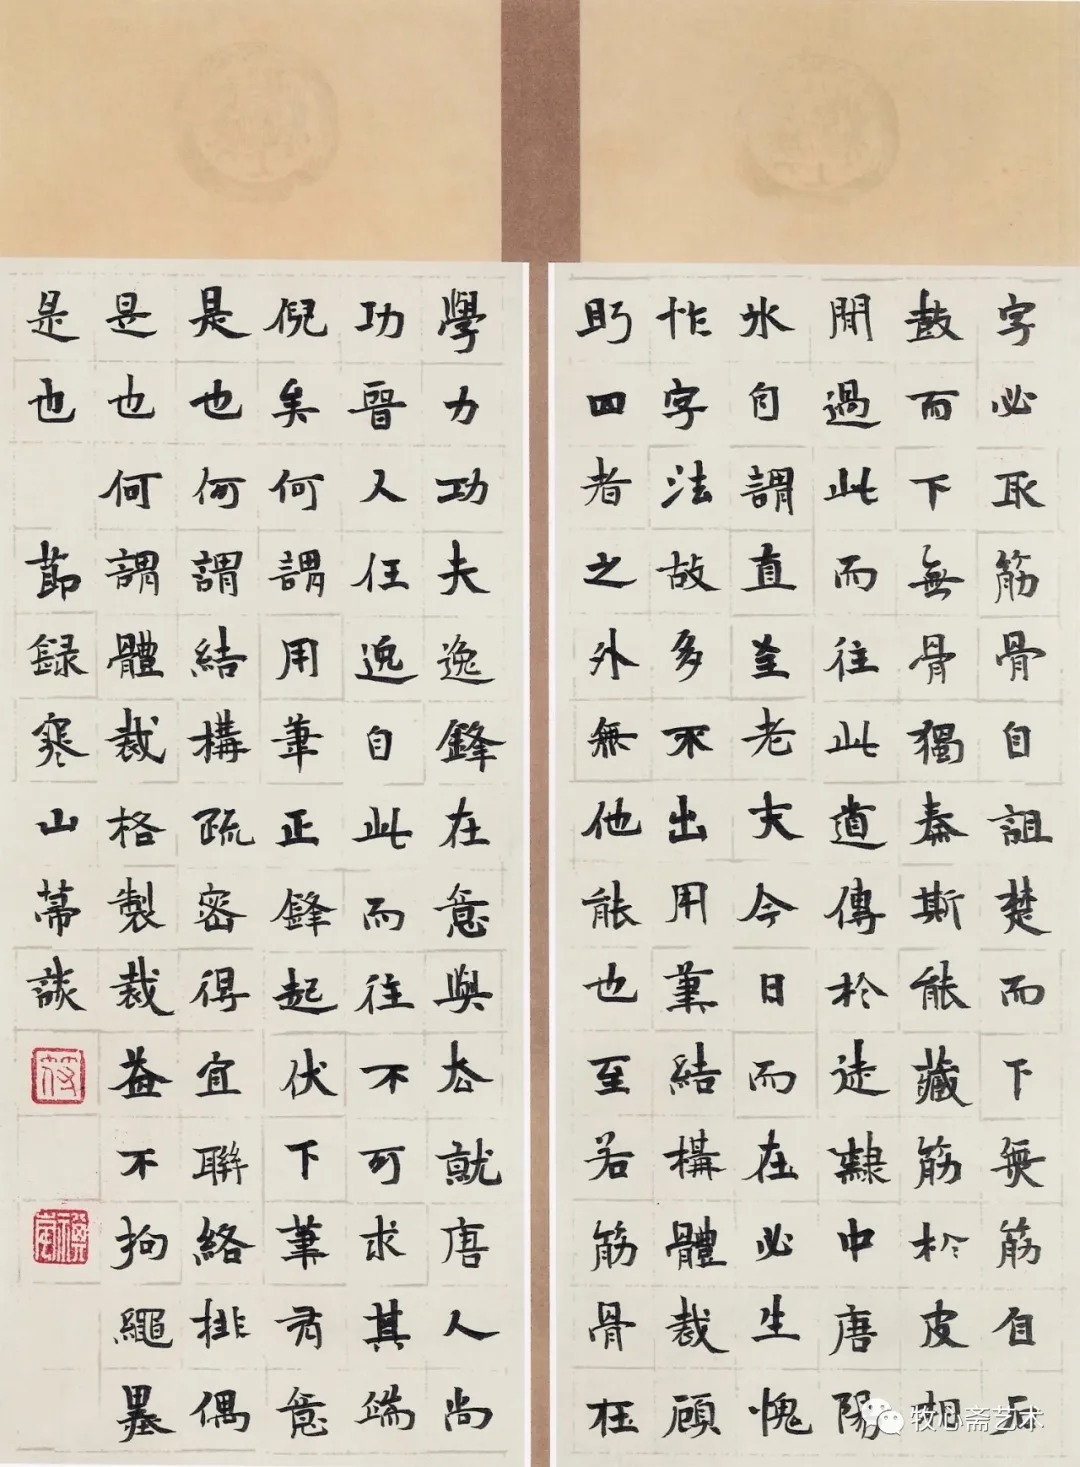 字必取筋骨自詛楚而下無筋自石
鼓而下無骨獨秦斯能藏筋於皮相
閒過此而往此道傳於徒隸中唐陽
氷自謂直至老夫今日而在必生愧
怍字法故多不出用筆結構體裁顧
眄四者之外無他能也至若筋骨枉
學力功夫逸鋒在意與態就唐人尚
功晉人任逸自此而往不可求其端
倪矣何謂用筆正鋒起伏下筆有意
是也何謂結構疏密得宜聯絡排偶
是也何謂體裁格製裁益不拘繩墨
是也 節録寒山帚談
牧心斋艺术